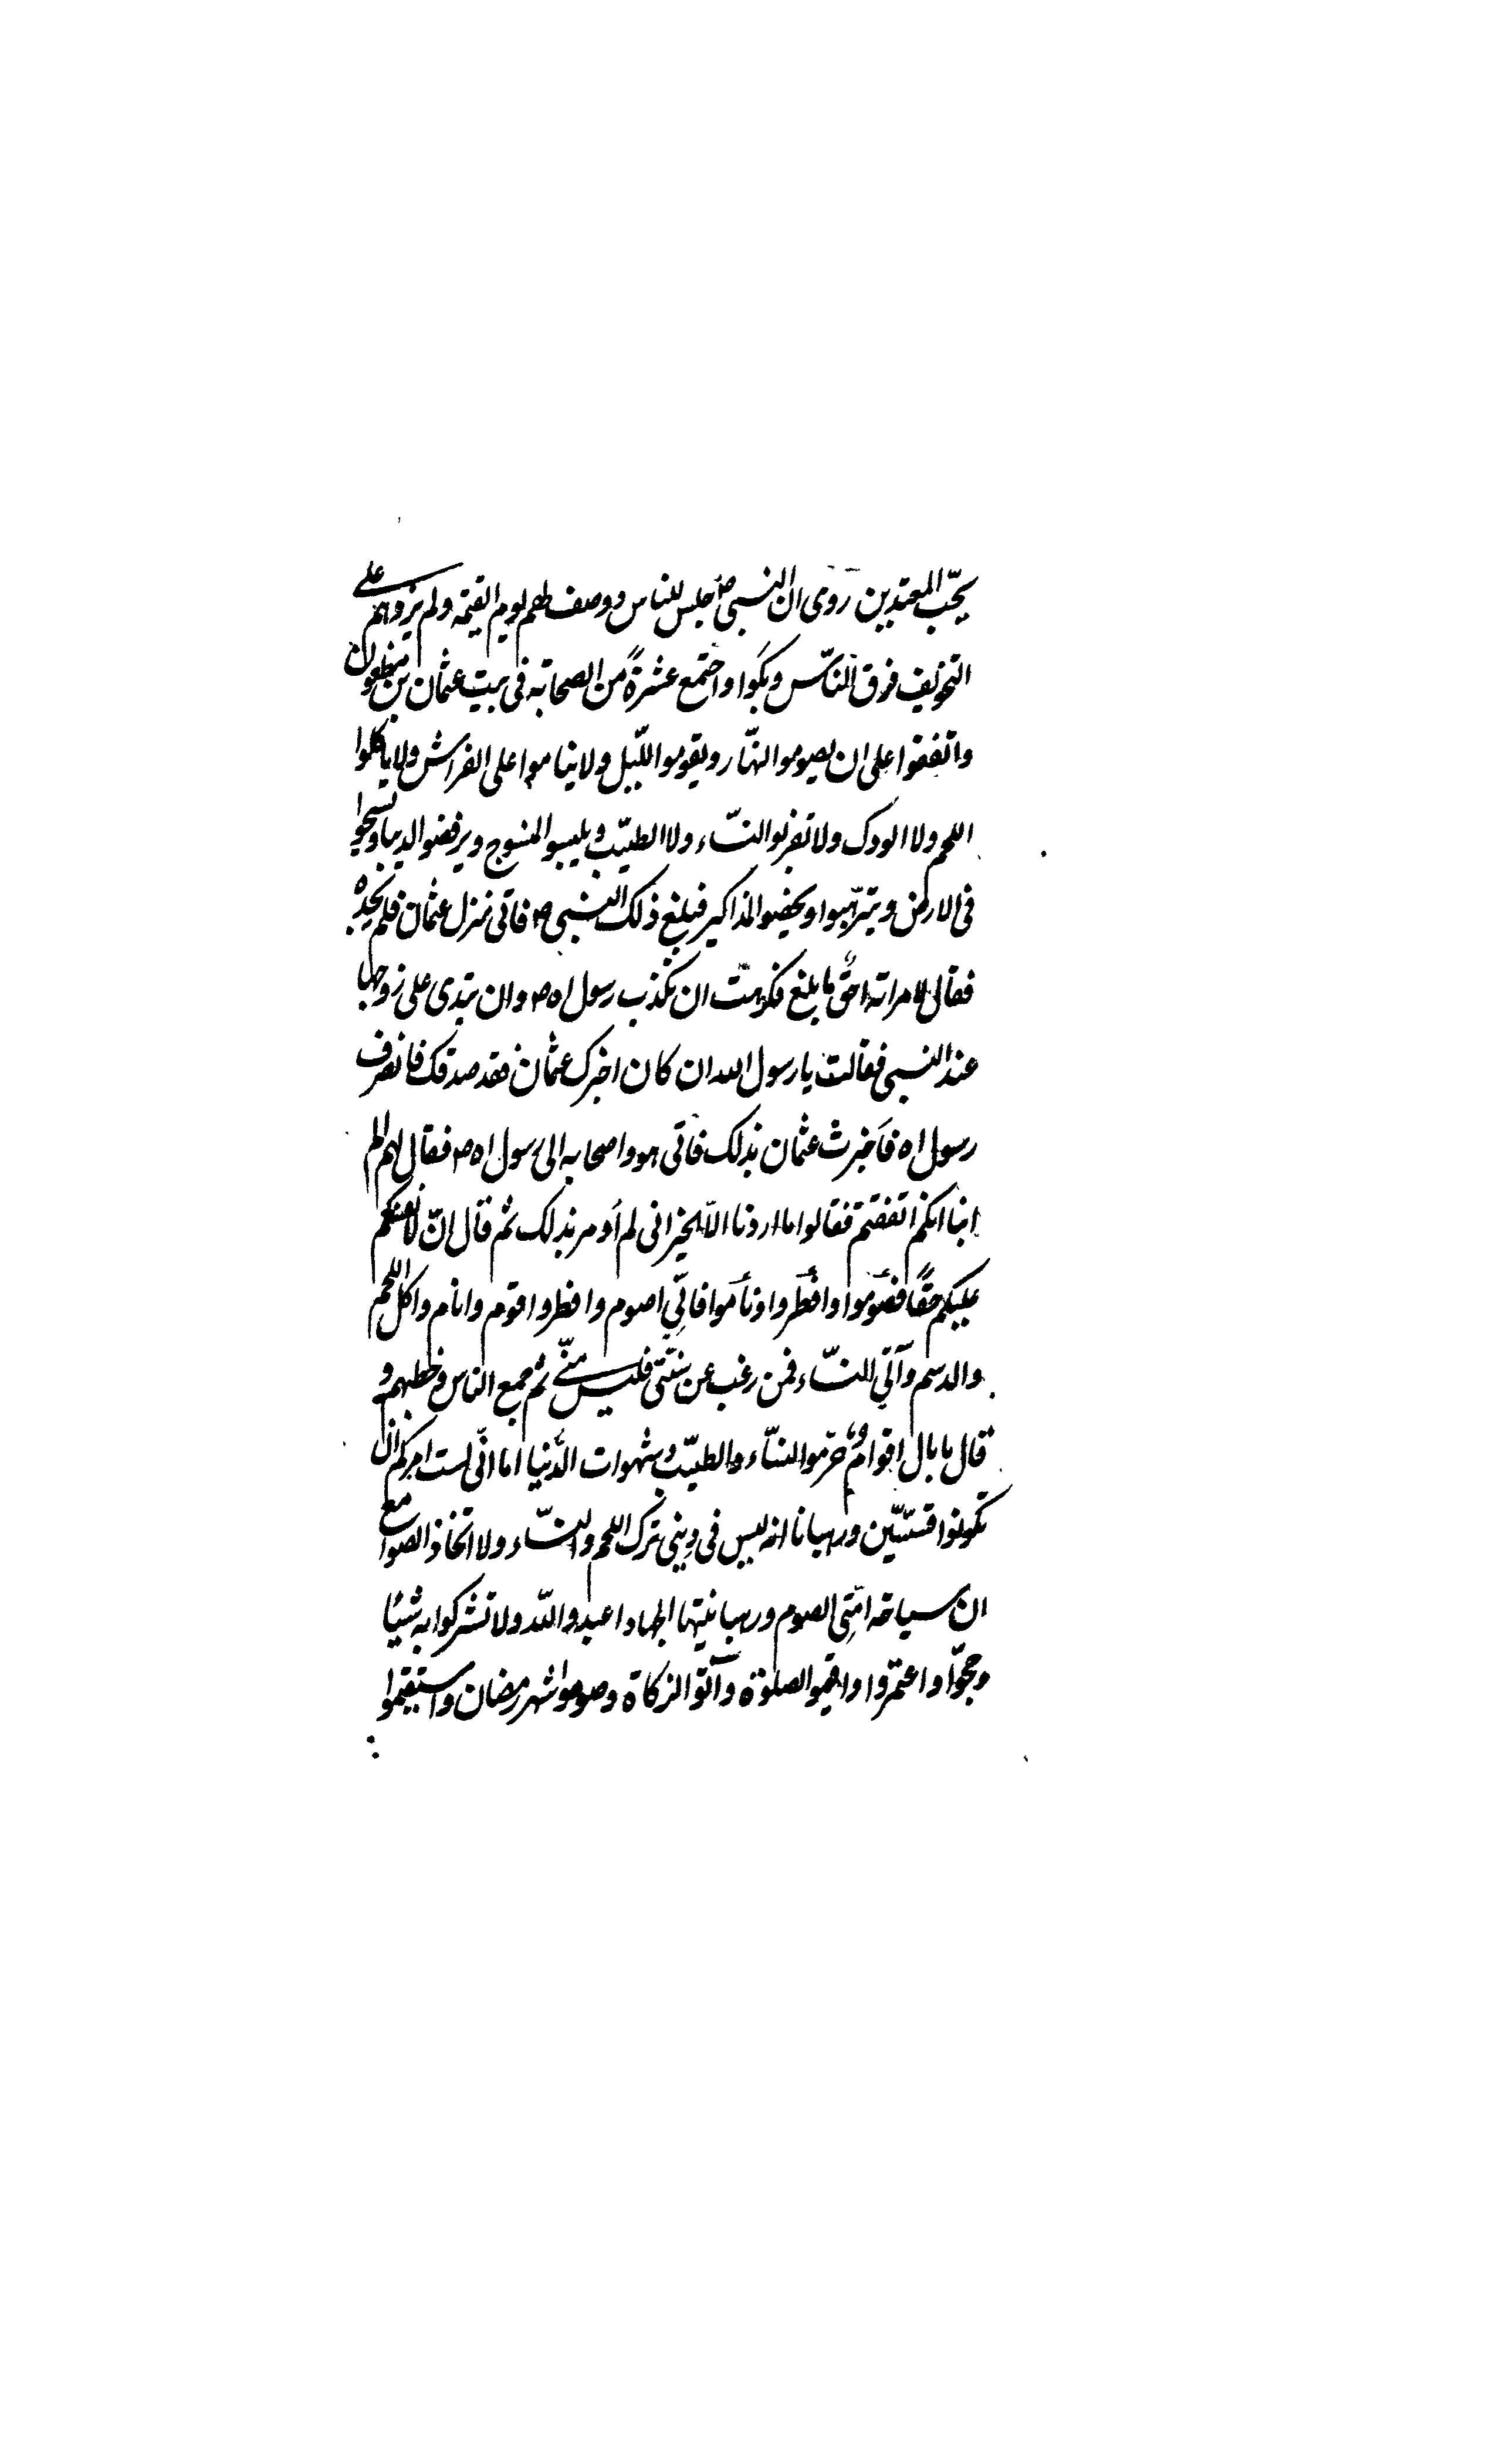 يحبّ المعتدين روى ان النبى ص جلس للناس ووصف لهم يوم القيمة ولم يزدهم على
التخويف فرق النّاس وبكوا واجتمع عشرةً من الصحابة فى بيت عثمان بن مظعون
واتفقوا على ان يصوموا النهّار ويقوموا اللّيل ولا يناموا على الفراش ولا ياكلوا
اللحم ولا الودك ولا تقربوا النسّاء ولا الطيّب ويلبسوا المنسوج ويرفضوا الدنيا ويسيحوا
فى الارض ويترهّبوا ويخصوا المذاكير فبلغ ذلك النبى ص فاتى منزل عثمان فلم يجده
فقال لامراته احقٌ ما بلغ فكرهت ان تكذب رسول اه ص وان تبدى على زوجها
عند النبى فقالت يا رسول الله ان كان اخبرك عثمان فقد صدقك فانصرف
رسول اه فاَخبرت عثمان بذلك فاتى هو واصحابه الى رسول اه ص فقال لهم الم
انبا انكم اتفقتم فقالوا ما اردنا الاّ الخير انى لم أومر بذلك ثم قال انّ لانفسكم
عليكم حقًا فصُوموا وافطَروا ونَاموا فانّي اصوم وافطر واقوم وانام واكل اللحم
والدسم وآتي النسّاء فمن رغب عن سنّتى فليس منّي ثم جمع الناس وخطبهم و
قال ما بال اقوامٌ حرّموا النسّاء والطيّب وشهوات الدّنيا اما انّى لست امركم ان
تكونوا قسّيّين ورهبانا انه ليس فى دينى ترك اللحم والنسّاء ولا اتخاذ الصوامع
ان سياحة امّتى الصوم ورهبانيتها الجهاد اعبدوا اللّه ولا تشركوا به شيئًا
وحجّوا واعتمرّوا واقيموا الصلوة وآتوا الزكاة وصوموا شهر رمضان واستقيموا